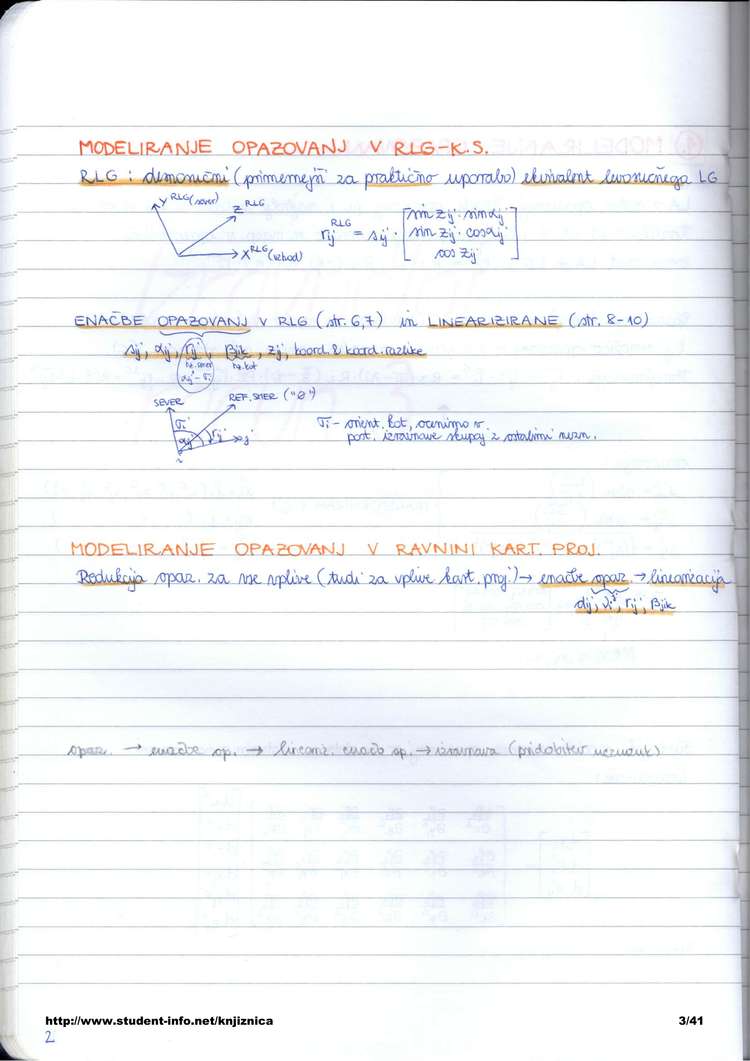 MODELIRANJE OPAZOVANJ V RLG-K.S.
RLG : desnosučni (primernejši za praktično uporabo) ekvivalent levosučnega LG
Y RLG (sever)
Z RLG
X RLG (vzhod)
rij RLG = sij · [sin zij · sin αij
sin zij · cos αij
cos zij]
ENAČBE OPAZOVANJ V RLG (str. 6,7) in LINEARIZIRANE (str. 8-10)
sij, αij, rij, βjik, zij, koord. & koord. razlike
hz. smer
hz. kot
αij - σi
SEVER
REF. SMER ("0")
σi
αij
rij
j
i
σi - orient. kot, ocenimo v
post. izravnave skupaj z ostalimi nezn.
MODELIRANJE OPAZOVANJ V RAVNINI KART. PROJ.
Redukcija opaz. za vse vplive (tudi za vplive kart. proj.) → enačbe opaz. → linearizacija
dij, νij, rij, βjik
opaz. → enačbe op. → lineariz. enačb op. → izravnava (pridobitev neznank)
http://www.student-info.net/knjiznica
3/41
2